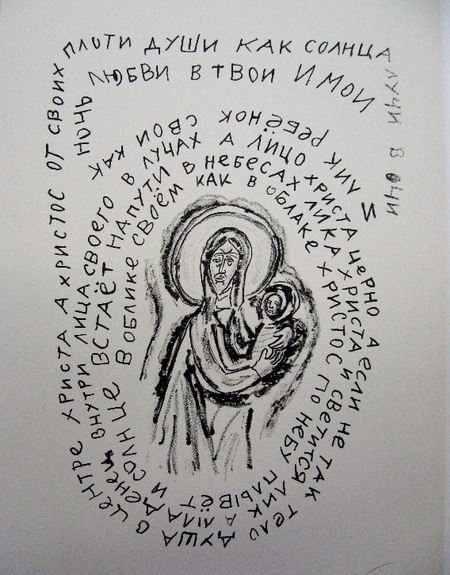 В ОБЛИКЕ СВОЁМ КАК В ОБЛАКЕ ХРИСТОС ПО НЕБУ ПЛЫВЁТ
И СОЛНЦЕ ВСТАЁТ НА ПУТИ В НЕБЕСАХ ЛИКА ХРИСТА И СВЕТИТСЯ ЛИК
А МЛАДЕНЕЦ ВНУТРИ ЛИЦА СВОЕГО В ЛУЧАХ А ЛИЦО ХРИСТА ЦЕРНО А ЕСЛИ НЕ ТАК ТЕЛО
ДУША В ЦЕНТРЕ ХРИСТА А ХРИСТОС ОТ СВОИХ ПЛОТИ ДУШИ КАК СОЛНЦА ЛУЧИ В ОЧИ
НОЧЬ ЛЮБВИ В ТВОИ И МОИ
И ЛИК РЕБЁНОК СВОЙ КАК